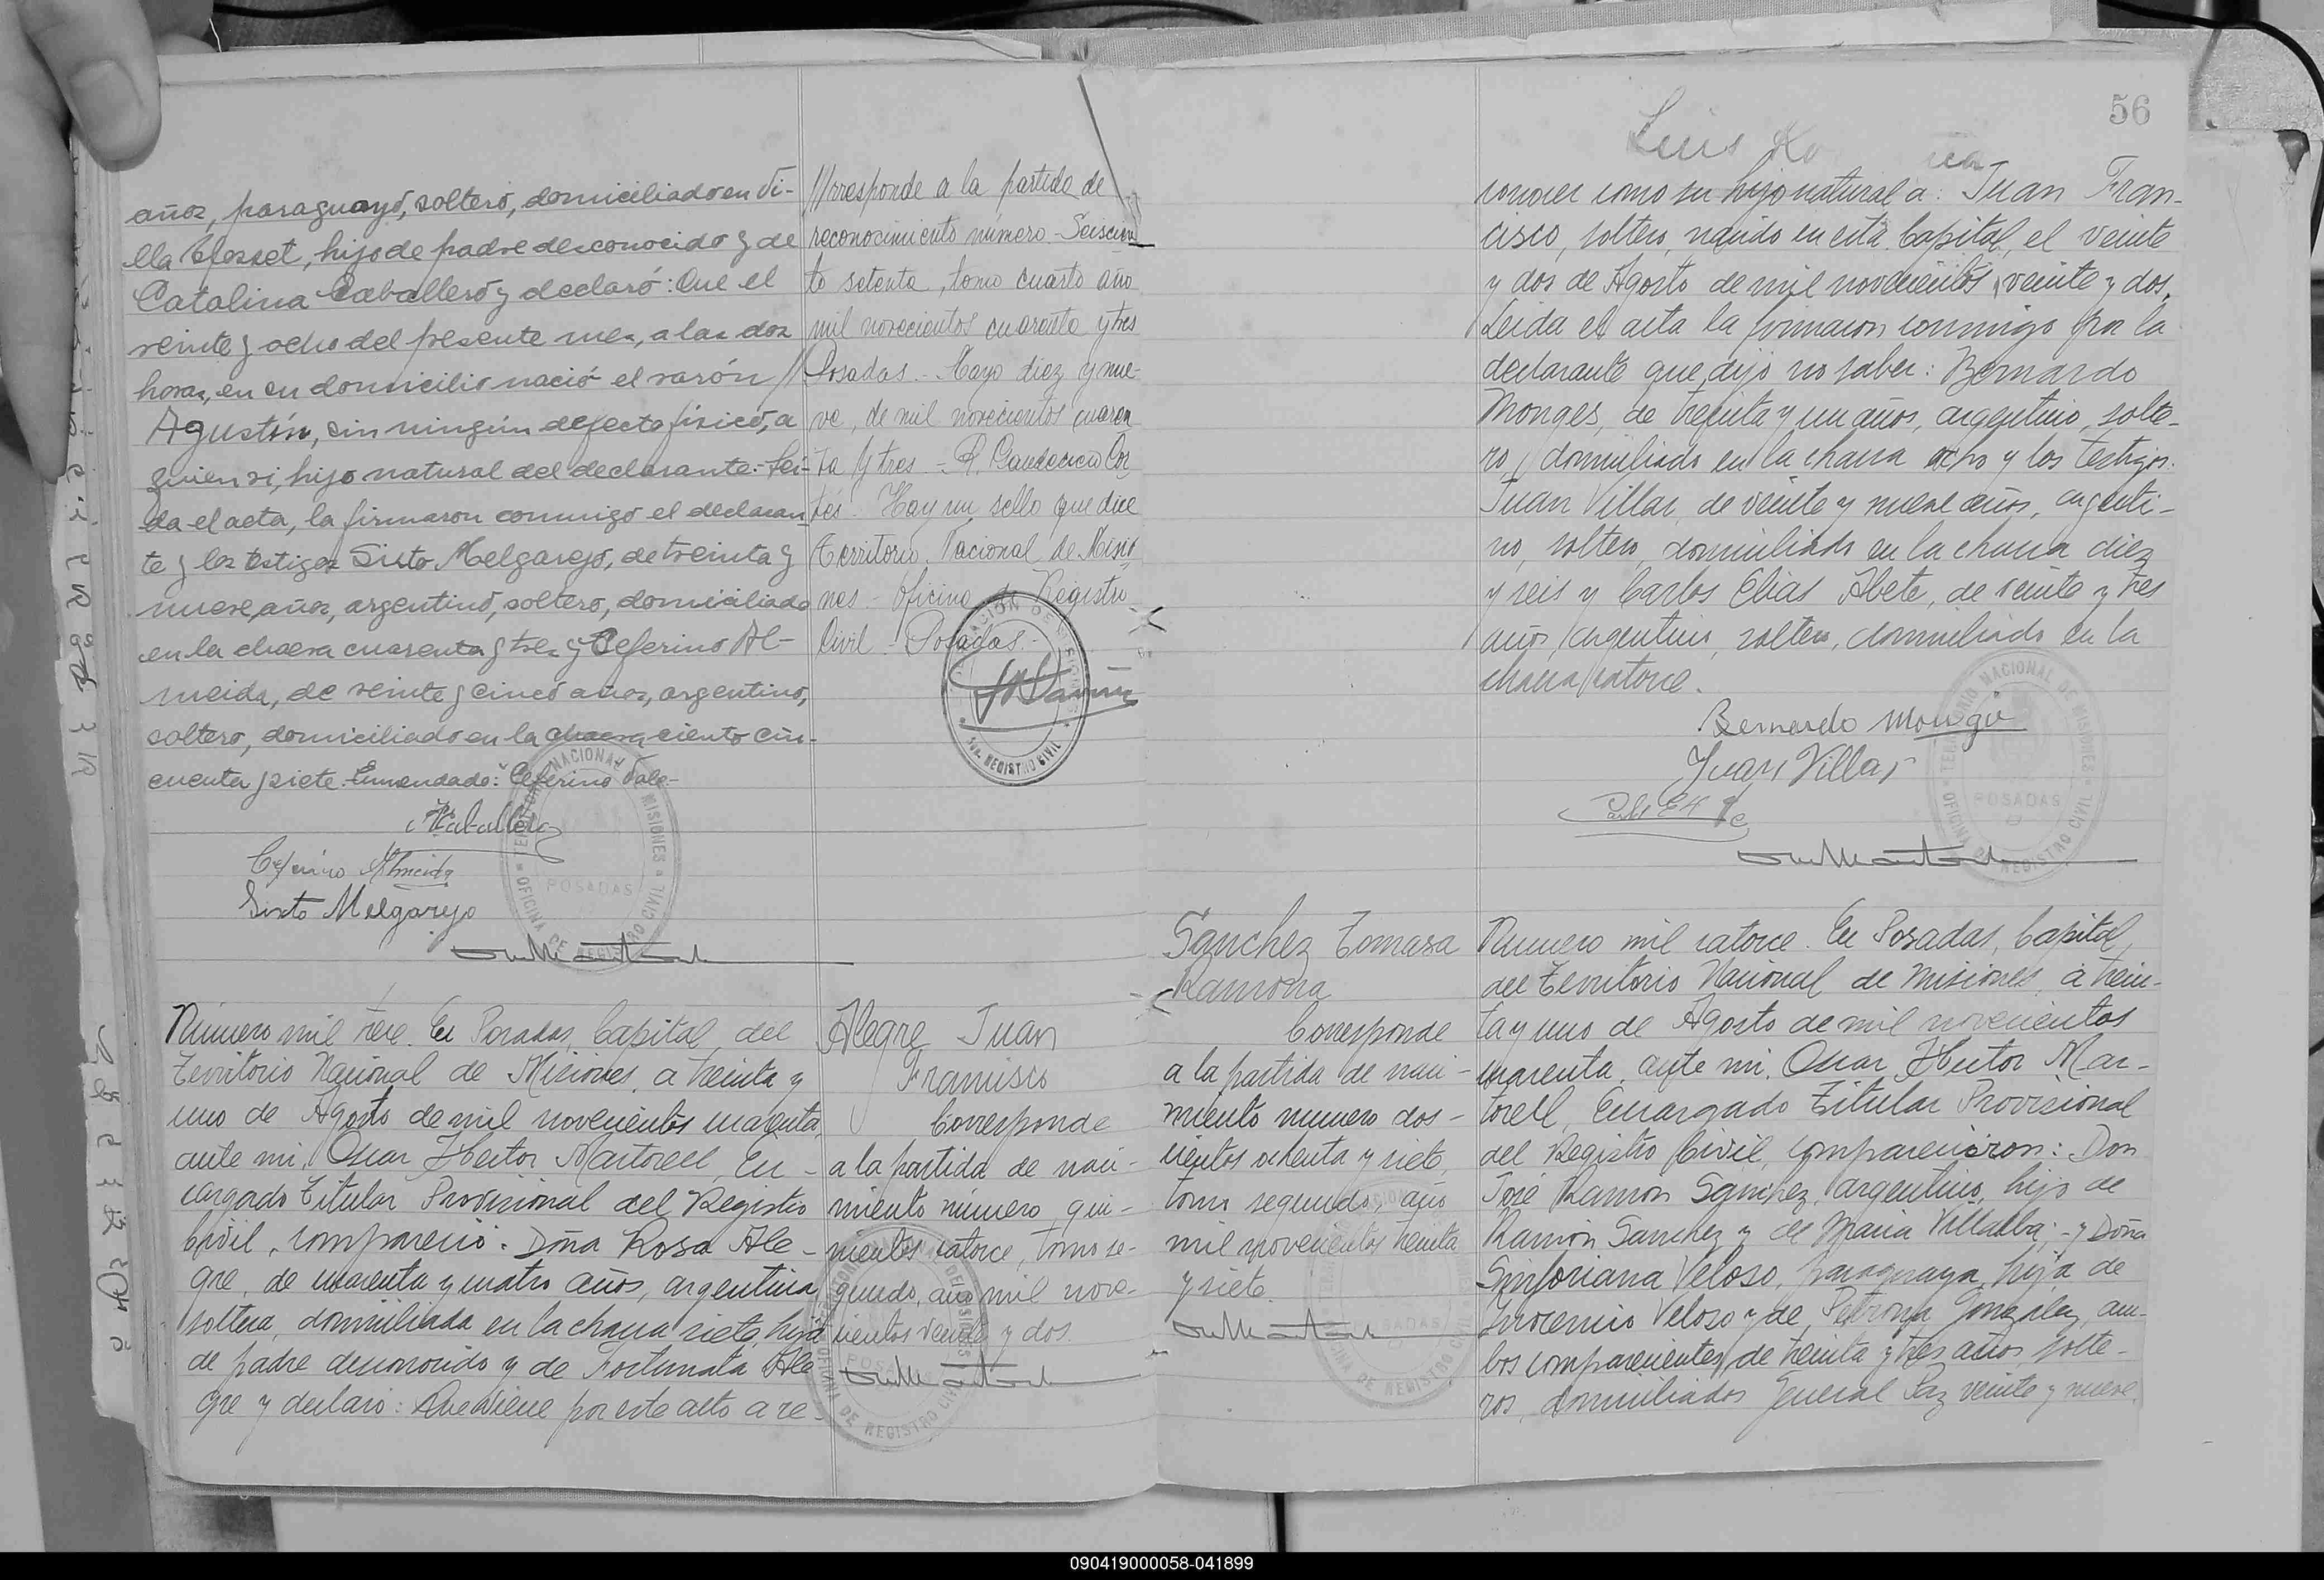 años, paraguayo, soltero, domiciliado en Vi-
lla Blosset, hijo de padre desconocido y de
Catalina Caballero y declaró: Que el
veinte y ocho del presente mes, a las dos
horas, en su domicilio nació el varón
Agustín, sin ningún defecto físico, a
quien vi, hijo natural del declarante.- Leí-
da el acta, la firmaron conmigo el declaran-
te y los testigos Sixto Melgarejo, de treinta y
nueve años, argentino, soltero, domiciliado
en la chacra cuarenta y tres y Ceferino Al-
meida, de veinte y cinco años, argentino,
soltero, domiciliado en la chacra ciento cin-
cuenta y siete. Enmendado: "Ceferino Vale-
Caballero
Ceferino Almeida
Sixto Melgarejo
TERRITORIO NACIONAL DE MISIONES
POSADAS
OFICINA DE REGISTRO CIVIL
//rresponde a la partida de
reconocimiento número - Seiscien
to setenta, tomo cuarto año
mil novecientos cuarenta y tres
Posadas.- Mayo diez y nue-
ve, de mil novecientos cuaren
ta y tres -
tés - Hay un sello que dice
Territorio Nacional de Misio
nes - Oficina de Registro
Civil - Posadas.-
REGISTRO CIVIL
Número mil trece. En Posadas, Capital del
Territorio Nacional de Misiones, a treinta y
uno de Agosto de mil novecientos cuarenta,
ante mi, Oscar Hector Martorell, En-
cargado Titular Provisional del Registro
Civil, compareció: Doña Rosa Ale-
gre, de cuarenta y cuatro años, argentina,
soltera, domiciliada en la chacra siete, hija
de padre desconocido y de Fortunata Ale
gre y declaró: Que viene por este acto a re-
Alegre Juan
Francisco
Corresponde
a la partida de naci-
miento número qui-
nientos catorce, tomo se-
gundo, año mil nove-
cientos veinte y dos.
56
Luis
conocer como su hijo natural a: Juan Fran-
cisco, soltero, nacido en esta Capital, el veinte
y dos de Agosto de mil novecientos veinte y dos.
Leida el acta la firmaron conmigo por la
declarante que dijo no saber: Bernardo
Monges, de treinta y un años, argentino, solte-
ro, domiciliado en la chacra ocho y los testigos:
Juan Villar, de veinte y nueve años, argenti-
no, soltero, domiciliado en la chacra diez
y seis y Carlos Elias Abete, de veinte y tres
años, argentino, soltero, domiciliado en la
chacra catorce.
Bernardo Monges
Juan Villar
TERRITORIO NACIONAL DE MISIONES
POSADAS
OFICINA DE REGISTRO CIVIL
Sanchez Tomasa
Ramona
Corresponde
a la partida de naci-
miento numero dos-
cientos ochenta y siete,
tomo segundo, año
mil novecientos treinta
y siete.
Número mil catorce. En Posadas, Capital,
del Territorio Nacional de Misiones, a trein-
ta y uno de Agosto de mil novecientos
cuarenta, ante mi, Oscar Hector Mar-
torell, Encargado Titular Provisional
del Registro Civil, comparecieron: Don
José Ramon Sanchez, argentino, hijo de
Ramón Sanchez y de Maria Villalba;- y Doña
Sinforiana Veloso, paraguaya, hija de
Inocencio Veloso y de Petrona Gonzalez, am-
bos comparecientes, de treinta y tres años, solte-
ros, domiciliados General Paz veinte y nueve,
090419000058-041899